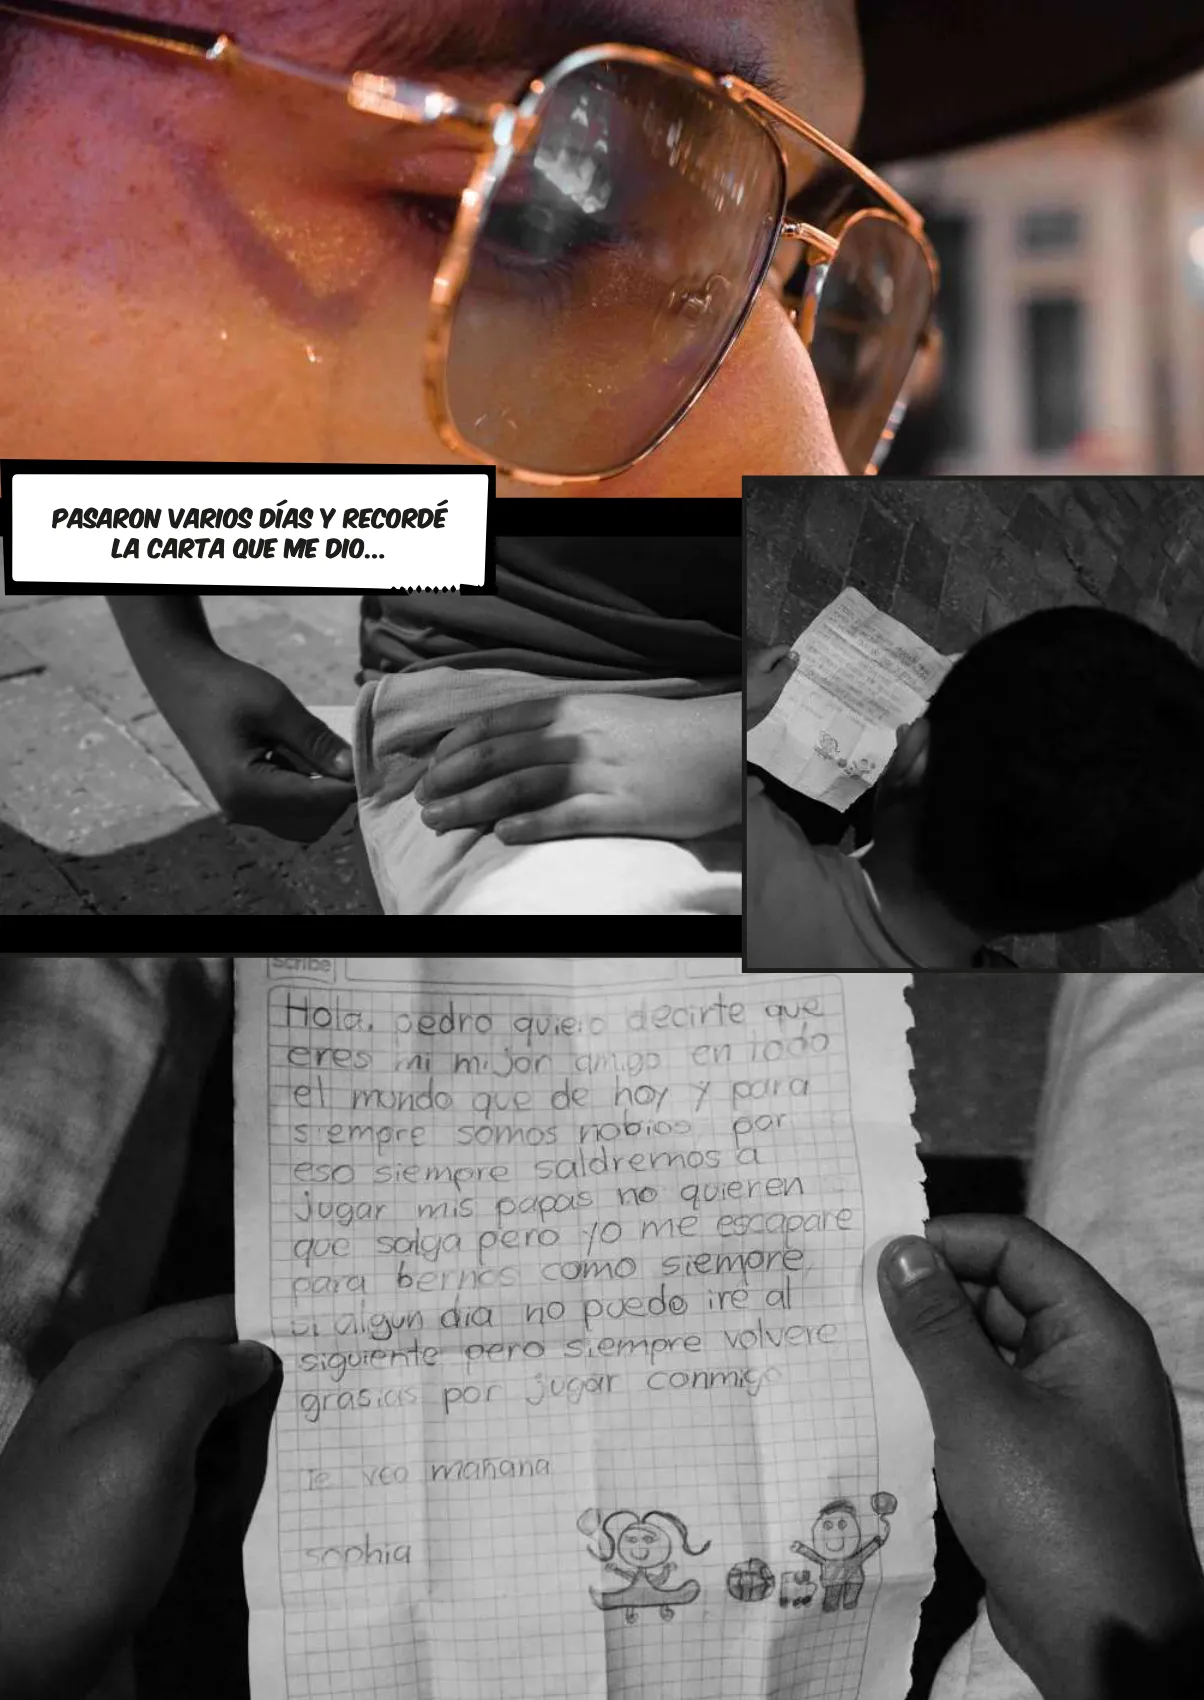 PASARON VARIOS DÍAS Y RECORDÉ
LA CARTA QUE ME DIO...
Scribe
Hola, pedro quiero decirte que
eres mi mijor amigo en todo
el mundo que de hoy y para
siempre somos nobios por
eso siempre saldremos a
jugar mis papas no quieren
que salga pero yo me escapare
para bernos como siempre,
si algun dia no puedo ire al
siguiente pero siempre volvere
grasias por jugar conmigo
te veo mañana
sophia